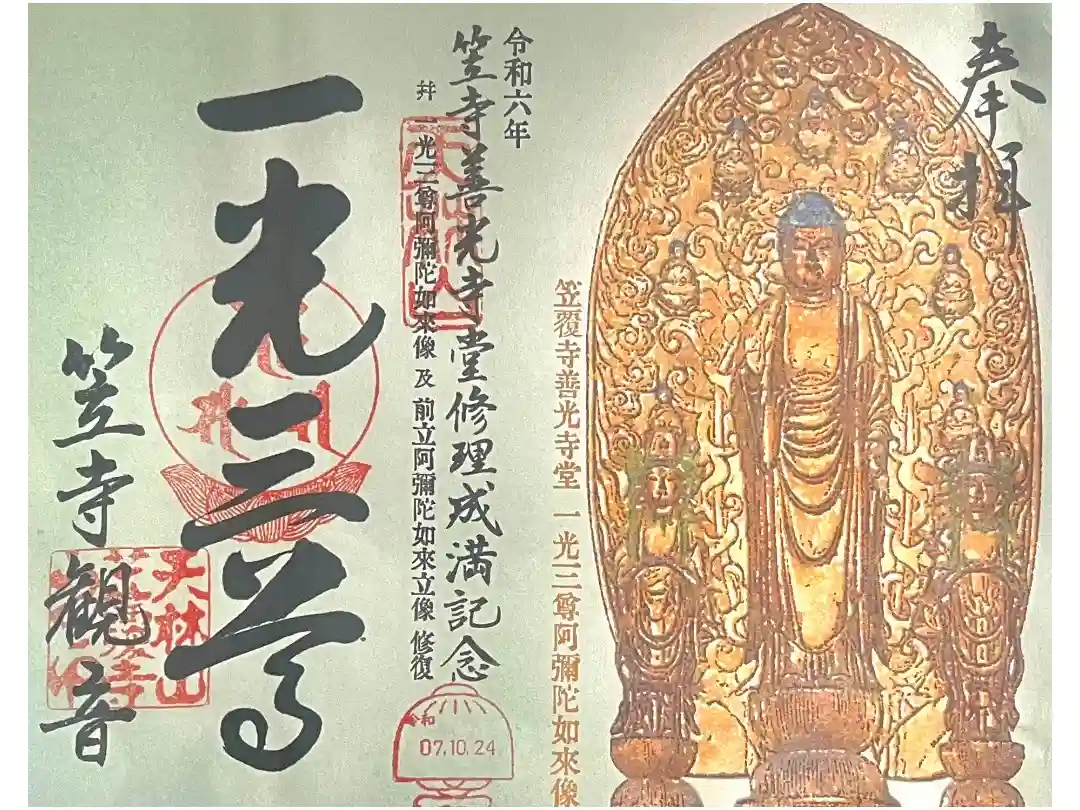 奉拝
笠覆寺善光寺堂 一光三尊阿彌陀如來像
令和六年
笠寺善光寺堂修理成満記念
幷 一光三尊阿彌陀如來像 及 前立阿彌陀如來立像 修復
令和
07.10.24
一光三尊
笠寺観音
天林山